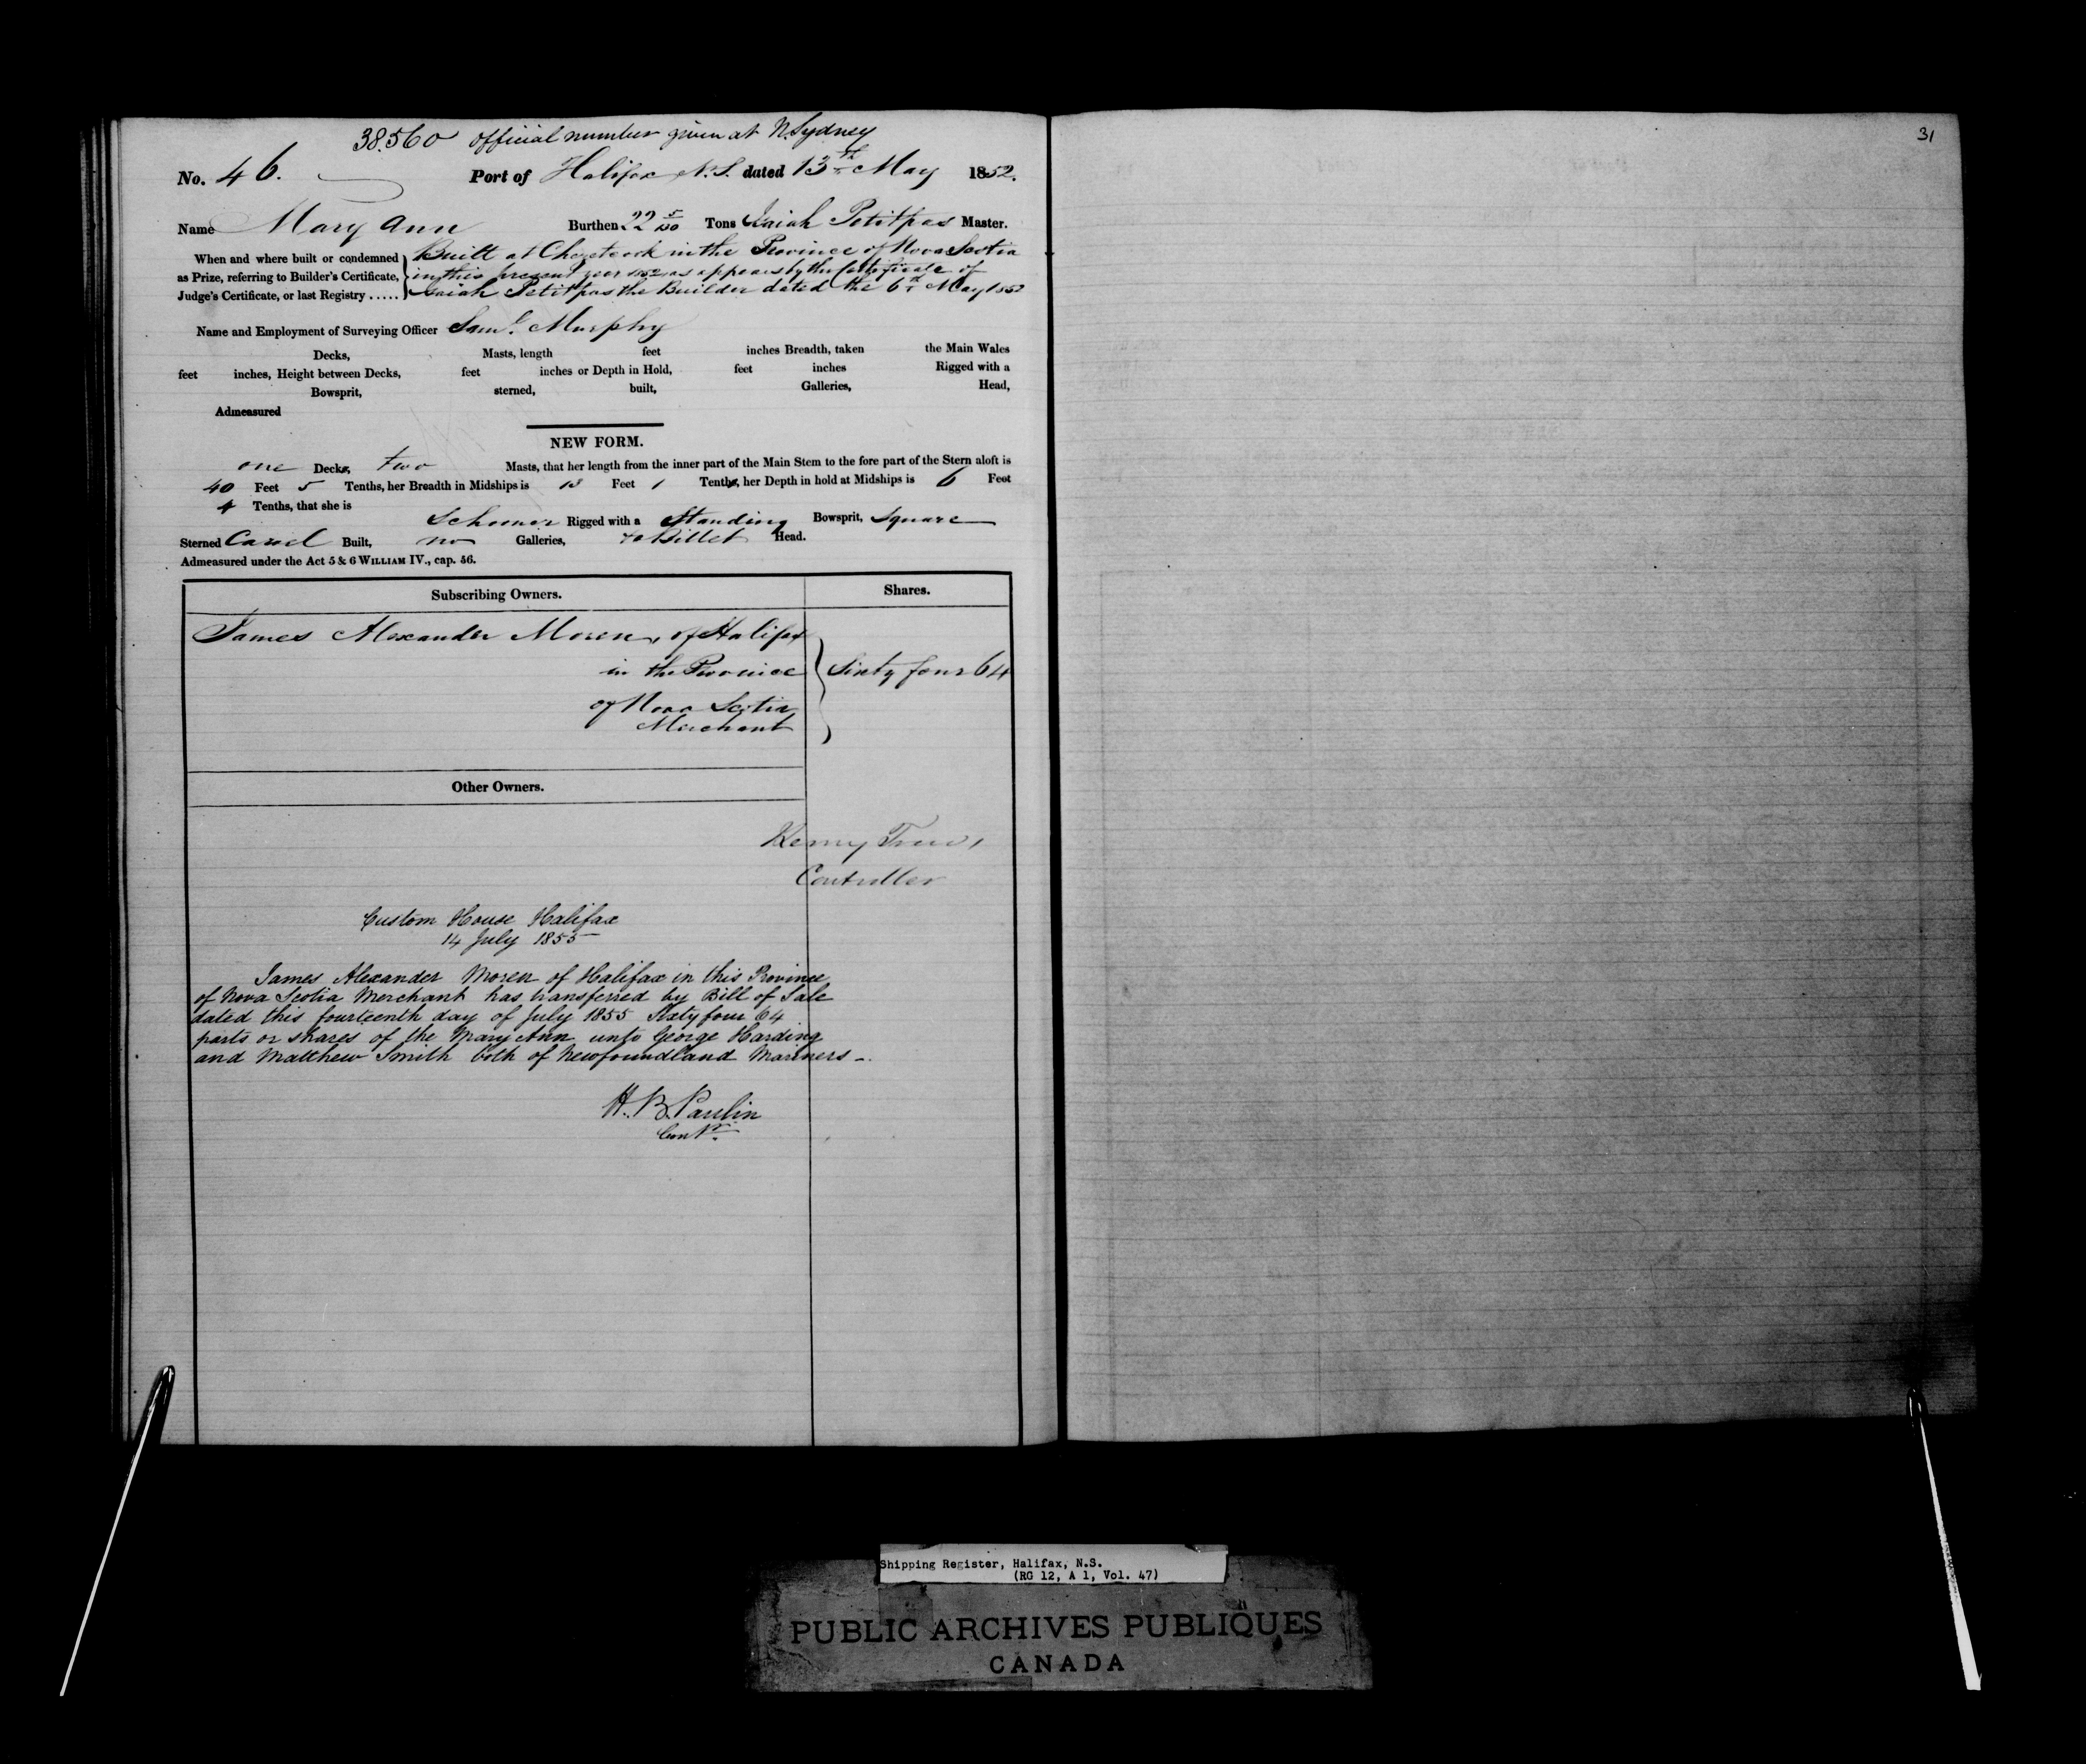 38.560 official number given at N. Sydney
No. 46. Port of Halifax N.S. dated 13th May 1852.
Name Mary Ann Burthen 22 Tons Isaiah Petitpas Master.
When and where built or condemned as Prize, referring to Builder's Certificate, Judge's Certificate, or last Registry .....
Built at Chezetcook in the Province of Nova Scotia
in this present year 1852 as appears by the Certificate of
Isaiah Petitpas the Builder dated the 6th May 1852
Name and Employment of Surveying Officer Saml. Murphy
Decks, Masts, length feet inches Breadth, taken the Main Wales
feet inches, Height between Decks, feet inches or Depth in Hold, feet inches Rigged with a
Bowsprit, sterned, built, Galleries, Head,
Admeasured
NEW FORM.
one Decks, two Masts, that her length from the inner part of the Main Stem to the fore part of the Stern aloft is
40 Feet 5 Tenths, her Breadth in Midships is 13 Feet 1 Tenths, her Depth in hold at Midships is 6 Feet
4 Tenths, that she is
Schooner Rigged with a Standing Bowsprit, Square
Sterned Carvel Built, no Galleries, Billet Head.
Admeasured under the Act 5 & 6 WILLIAM IV., cap. 56.
Subscribing Owners. Shares.
James Alexander Moren, of Halifax
in the Province Sixty four 64
of Nova Scotia
Merchant
Other Owners.
Controller
Custom House Halifax
14 July 1855
James Alexander Moren of Halifax in this Province
of Nova Scotia Merchant has transferred by Bill of Sale
dated this fourteenth day of July 1855 Sixty four 64
parts or shares of the Mary Ann unto George Harding
and Matthew Smith both of Newfoundland Mariners -
H. B. Paulin
Contr.
31
Shipping Register, Halifax, N.S.
(RG 12, A 1, Vol. 47)
PUBLIC ARCHIVES PUBLIQUES
CANADA